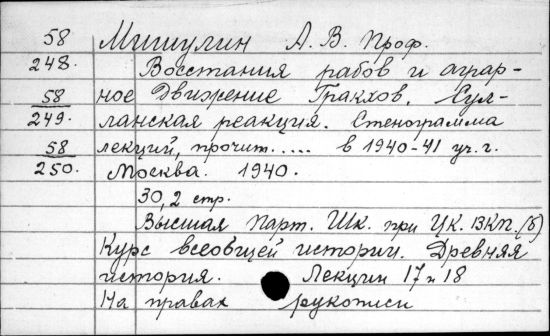 58 Мишулин А. В. Проф.
248. Восстания рабов и аграр-
58 ное Движение Гракхов. Сул-
249. ланская реакция. Стенограмма
58 лекций, прочит..... в 1940-41 уч. г.
250. Москва. 1940.
30, 2 стр.
Высшая Парт. Шк. при ЦК. ВКП. (б)
Курс всеобщей истории. Древняя
история. Лекции 17 и 18
На правах рукописи